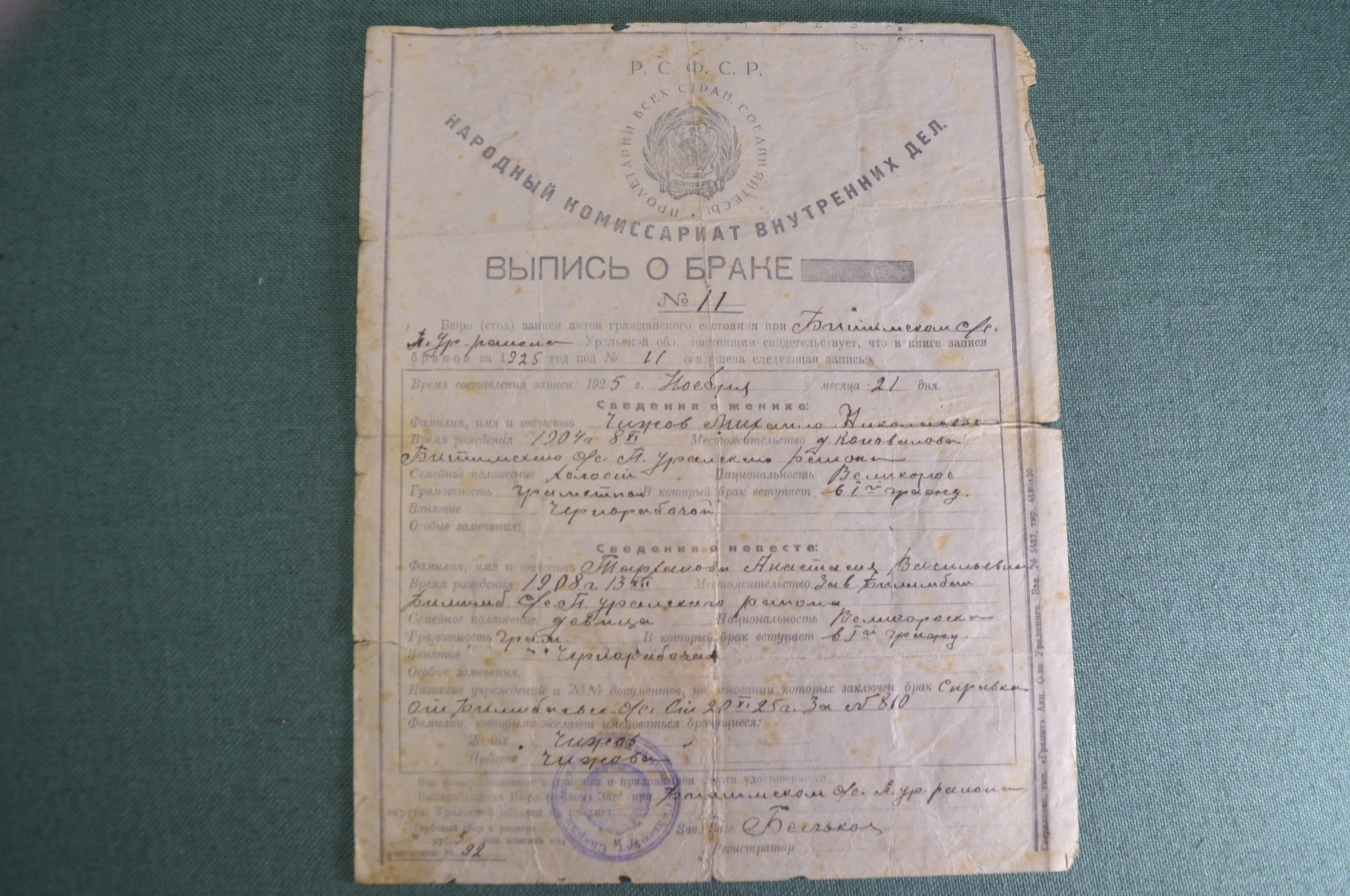 Р. С. Ф. С. Р.
ПРОЛЕТАРИИ ВСЕХ СТРАН, СОЕДИНЯЙТЕСЬ!
НАРОДНЫЙ КОМИССАРИАТ ВНУТРЕННИХ ДЕЛ.
ВЫПИСЬ О БРАКЕ
№ 11
Бюро (стол) записи актов гражданского состояния при Битимском с/с.
П. Ур. района Уральской обл. настоящим свидетельствует, что в книге записи
браков за 1925 год под № 11 совершена следующая запись:
Время составления записи: 1925 г. Ноября месяца 21 дня.
Сведения о женихе:
Фамилия, имя и отчество Чижов Михаило Николаевич
Время рождения 1904 г 8 XI Местожительство д. Коновалова
Битимского с/с. П. уральского района
Семейное положение холост Национальность Великорос
Грамотность грамотной В который брак вступает в 1ый гражд.
Занятие Чернорабочой
Особые замечания:
Сведения о невесте:
Фамилия, имя и отчество Анастасия Васильевна
Время рождения 1908 г 13 XII Местожительство Зав. Билимбай
Билимб с/с П уральского района
Семейное положение девица Национальность Великороска
Грамотность Грам. В который брак вступает в 1ый гражд.
Занятие Чернорабочая
Особые замечания.
Название учреждений и №№ документов, на основании которых заключен брак Справка
от с/с. от XI 25 г. за № 810
Фамилии, которыми желают именоваться брачущиеся:
Жених Чижов
Невеста Чижова
при Битимском с/с. П. ур. района
Зав. Загс
Регистратор
92